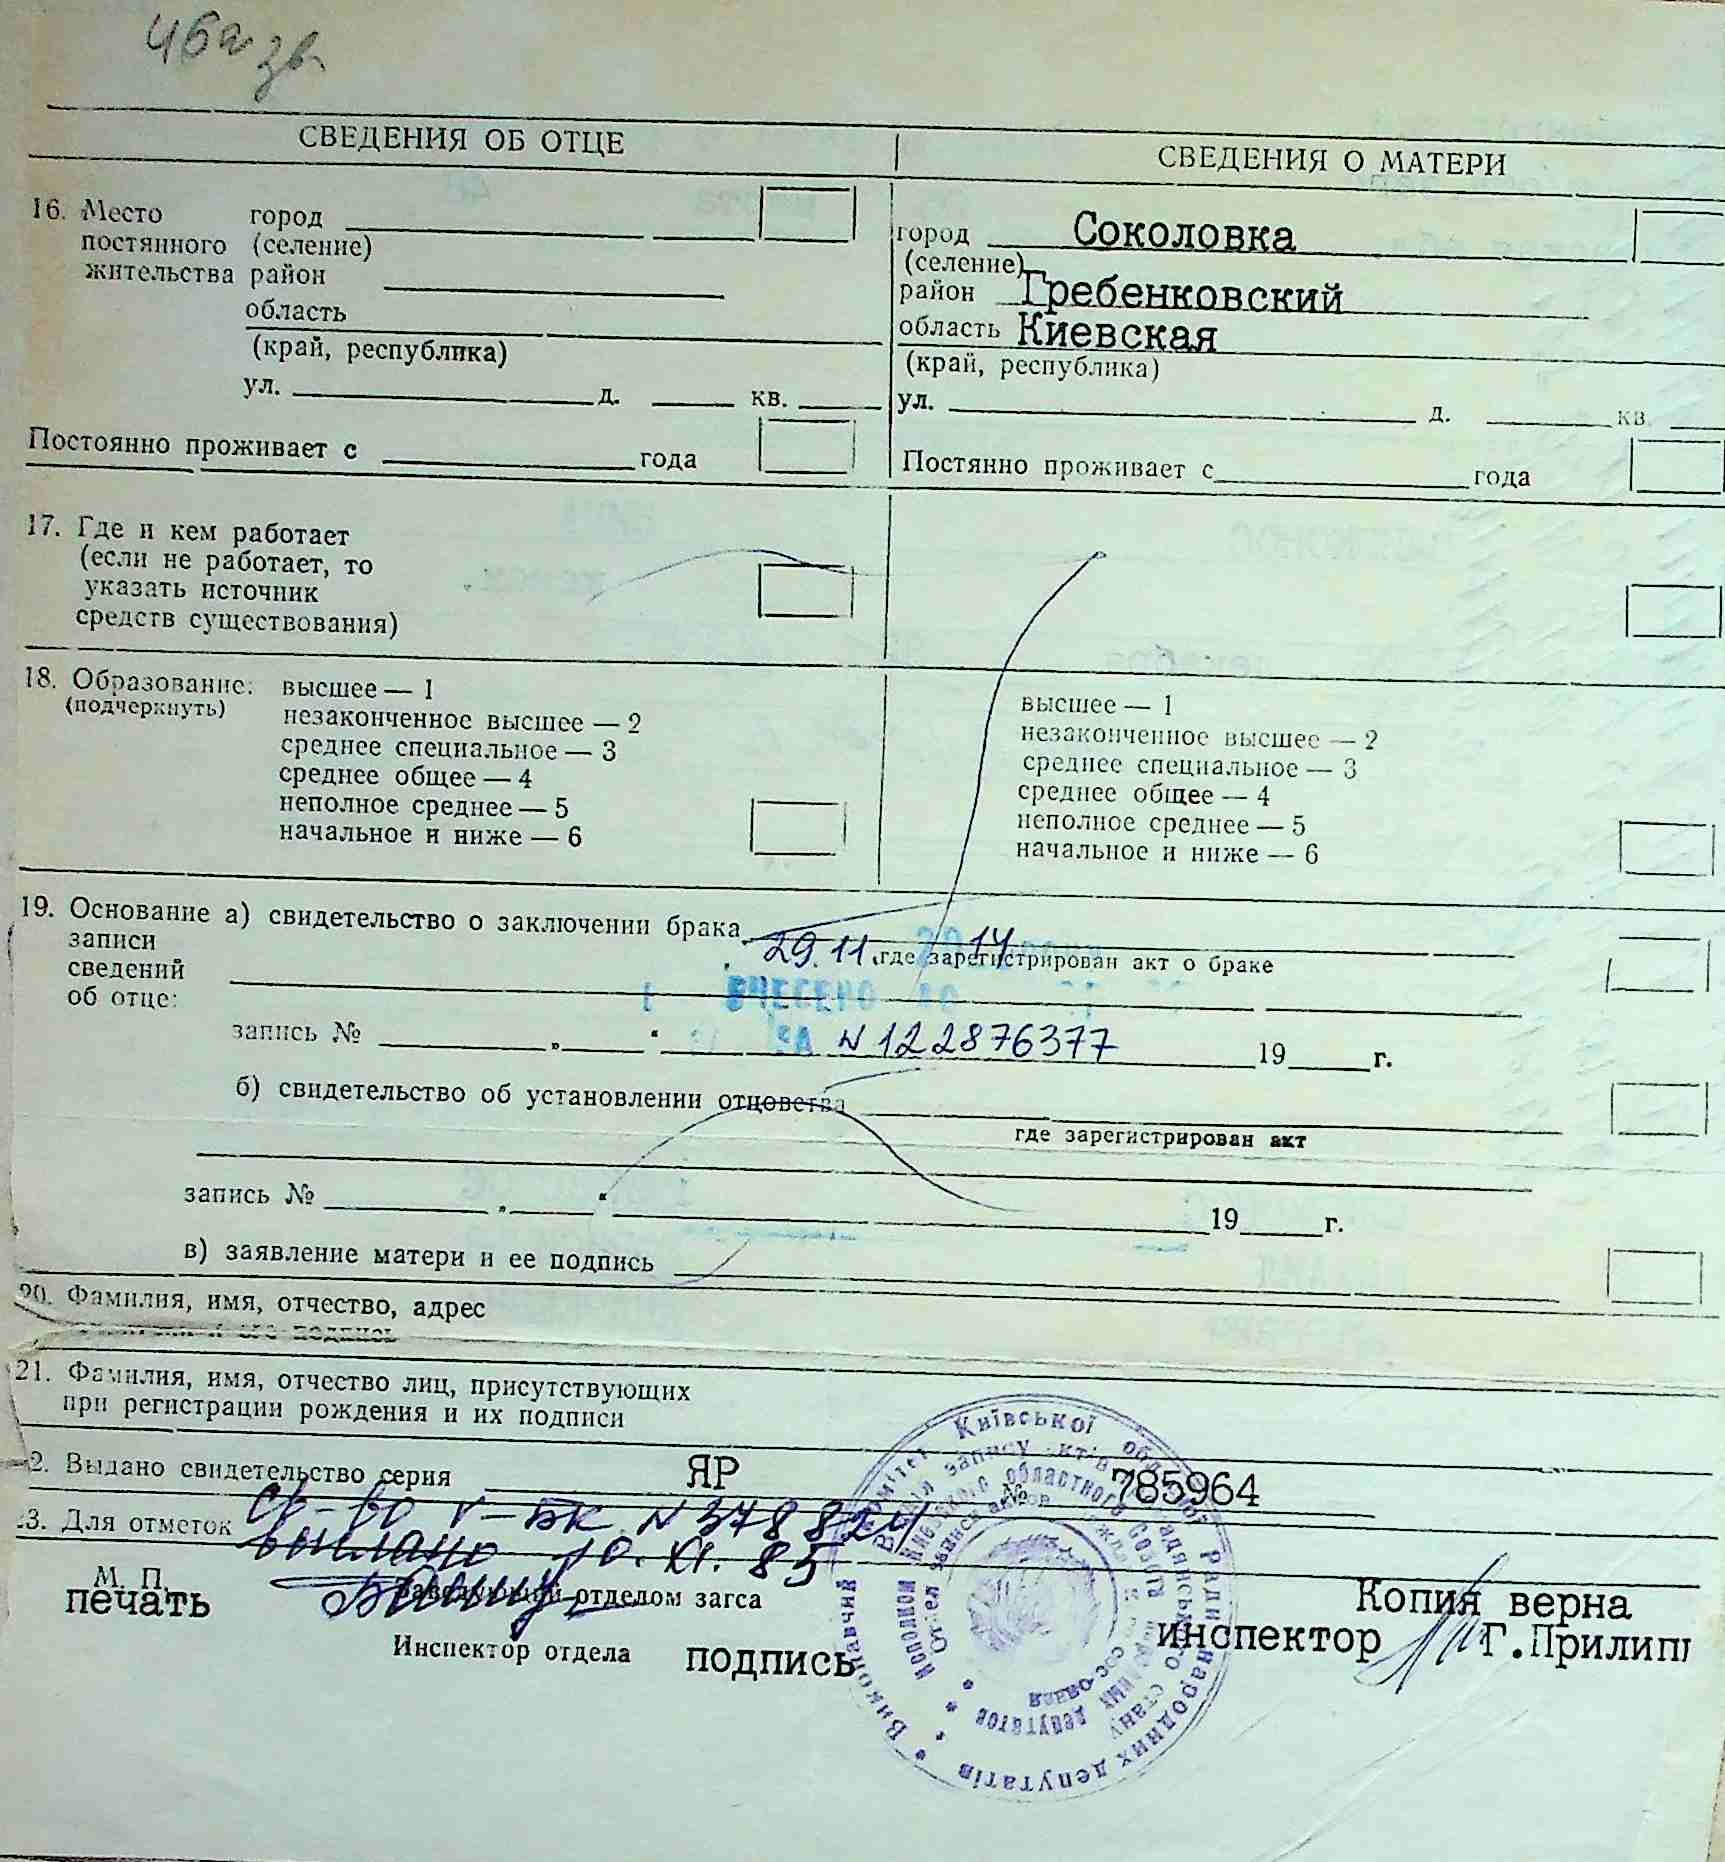 СВЕДЕНИЯ ОБ ОТЦЕ
СВЕДЕНИЯ О МАТЕРИ
16. Место постянного жительства
город
(селение)
район
область
(край, республика)
ул. д. кв.
Постоянно проживает с года
город Соколовка
(селение)
район Гребенковский
область Киевская
(край, республика)
ул. д. кв.
Постянно проживает с года
17. Где и кем работает
(если не работает, то
указать источник
средств существования)
18. Образование:
(подчеркнуть)
высшее — 1
незаконченное высшее — 2
среднее специальное — 3
среднее общее — 4
неполное среднее — 5
начальное и ниже — 6
высшее — 1
незаконченное высшее — 2
среднее специальное — 3
среднее общее — 4
неполное среднее — 5
начальное и ниже — 6
19. Основание записи сведений об отце:
а) свидетельство о заключении брака
29.11 2014
где зарегистрирован акт о браке
ВНЕСЕНО ДО
ЗА N 122876377
запись № „ “ 19 г.
б) свидетельство об установлении отцовства
где зарегистрирован акт
запись № „ “ 19 г.
в) заявление матери и ее подпись
20. Фамилия, имя, отчество, адрес
и его подпись
21. Фамилия, имя, отчество лиц, присутствующих
при регистрации рождения и их подписи
2. Выдано свидетельство серия ЯР № 785964
3. Для отметок Св-во V-БК N 378824
выдано 10.XI.85
М. П.
печать
Заведующий отделом загса
Инспектор отдела подпись
Копия верна
инспектор Г.Прилип
Виконавчий комітет Київської обласної Ради народних депутатів
Відділ запису актів громадянського стану
Исполком Киевского областного Совета народных депутатов